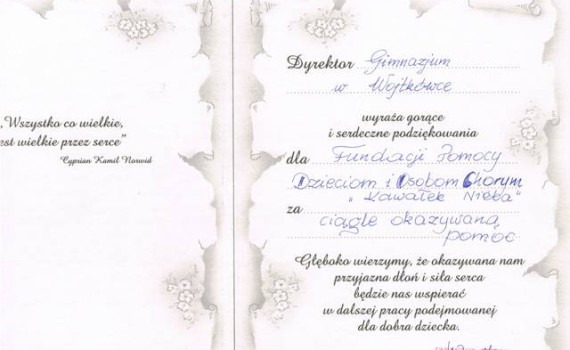 „Wszystko co wielkie,
est wielkie przez serce”
Cyprian Kamil Norwid
Dyrektor Gimnazjum
w Wojtkówce
wyraża gorące
i serdeczne podziękowania
dla Fundacji Pomocy
Dzieciom i Osobom Chorym
„Kawałek Nieba”
za ciągle okazywaną
pomoc
Głęboko wierzymy, że okazywana nam
przyjazna dłoń i siła serca
będzie nas wspierać
w dalszej pracy podejmowanej
dla dobra dziecka.